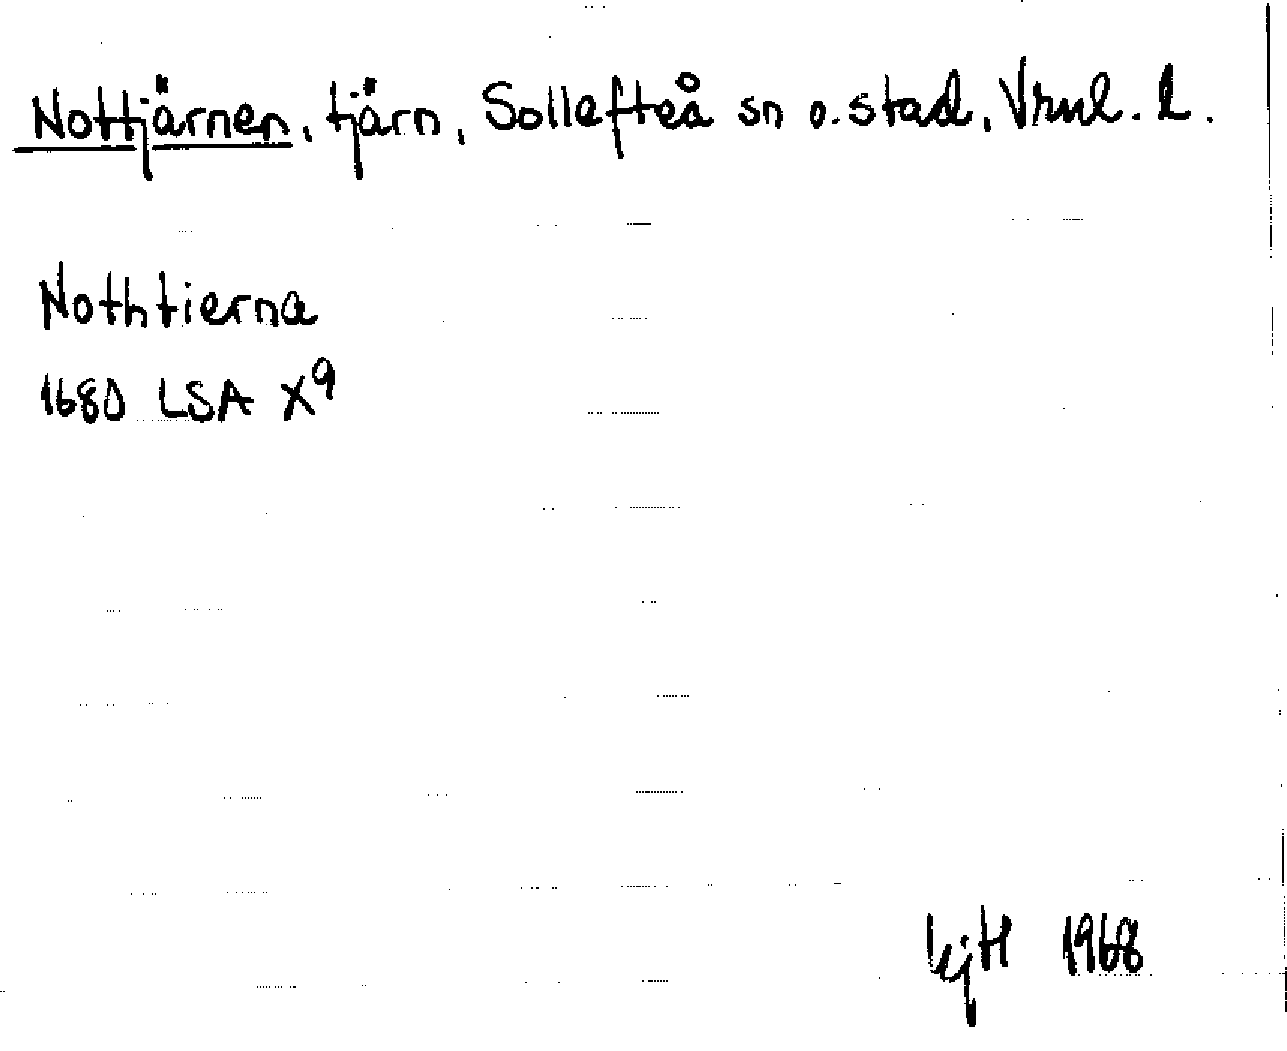 Nottjärnen, tjärn, Sollefteå sn o. stad, Vrml. l.
Nothtierna
1680 LSA X9
kjH 1968